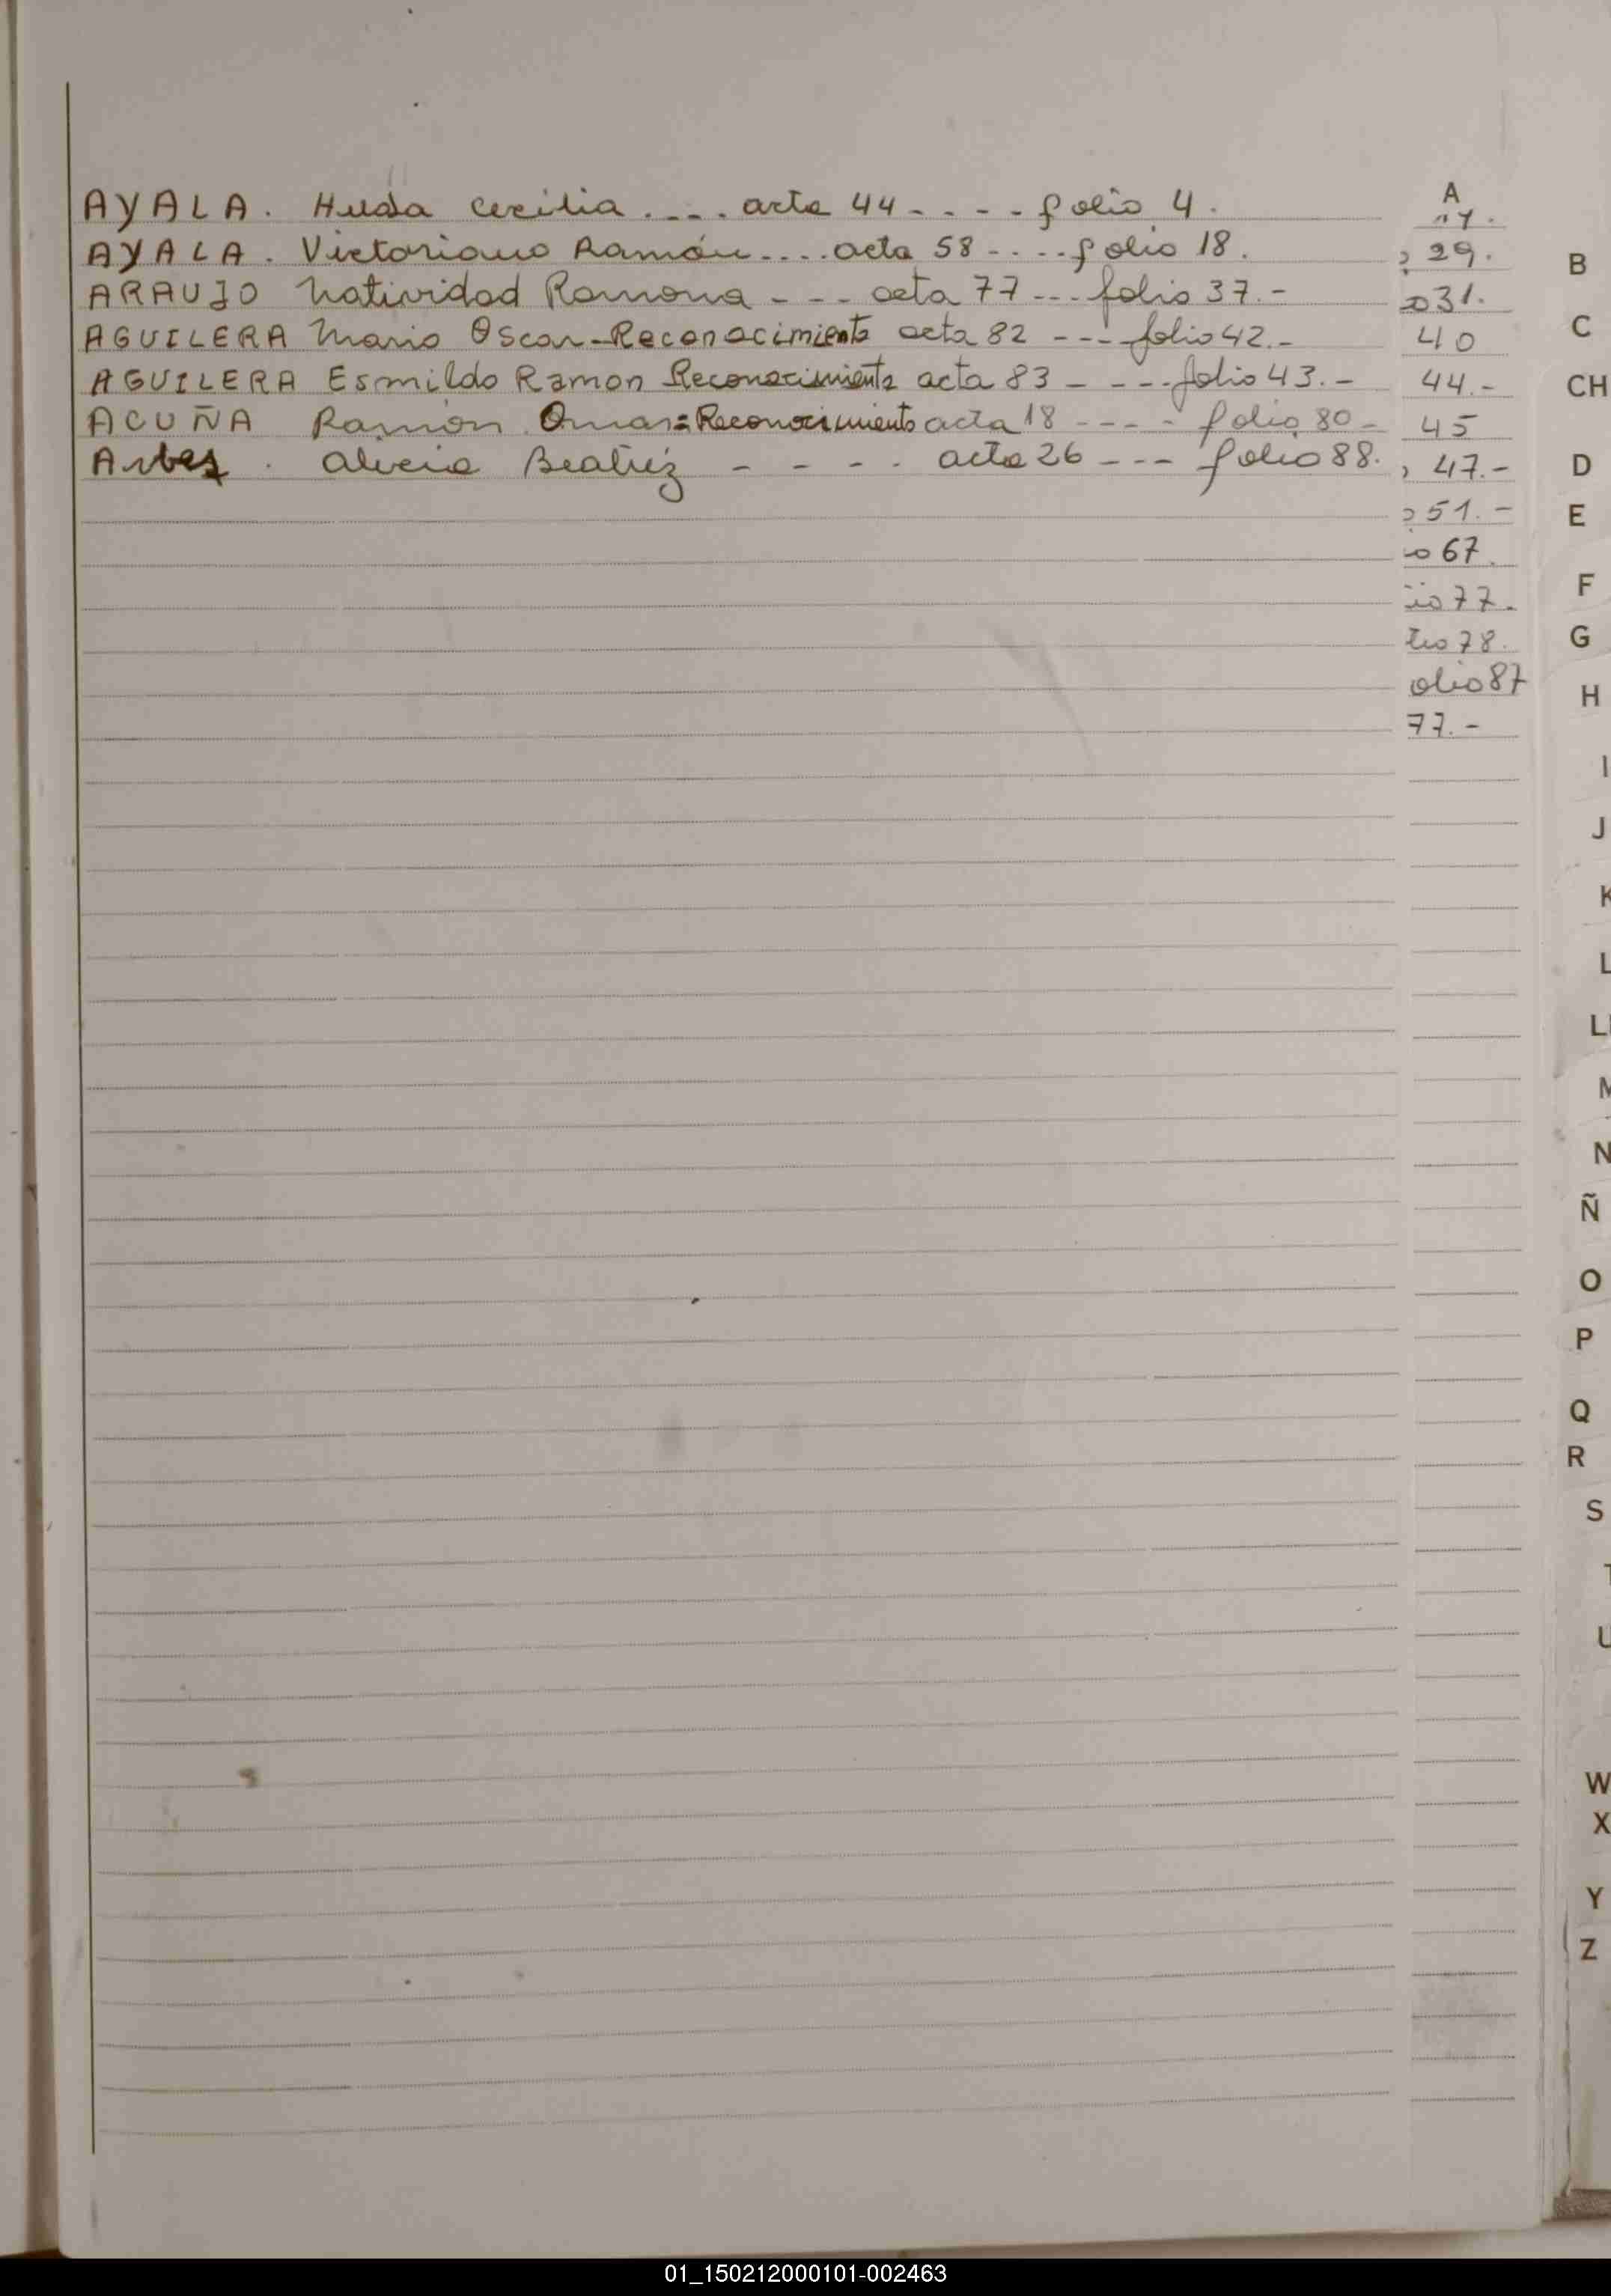 A
AYALA. Hilda Cecilia .... acta 44 - - - - folio 4.
AYALA. Victoriano Ramón .... acta 58 - - - - folio 18.
ARAUJO Natividad Ramona - - - acta 77 - - - folio 37.-
AGUILERA Mario Oscar - Reconocimiento acta 82 - - - folio 42.-
AGUILERA Esmildo Ramon Reconocimiento acta 83 - - - - folio 43.-
ACUÑA Ramón Omar = Reconocimiento acta 18 - - - - folio 80 -
Alicia Beatriz - - - - acta 26 - - - folio 88.
29.
o 31.
40
44.-
45
47.-
51.-
io 67.
io 77.
lio 78.
olio 87
77.-
B
C
CH
D
E
F
G
H
I
J
K
L
LL
M
N
Ñ
O
P
Q
R
S
T
U
W
X
Y
Z
01_150212000101-002463